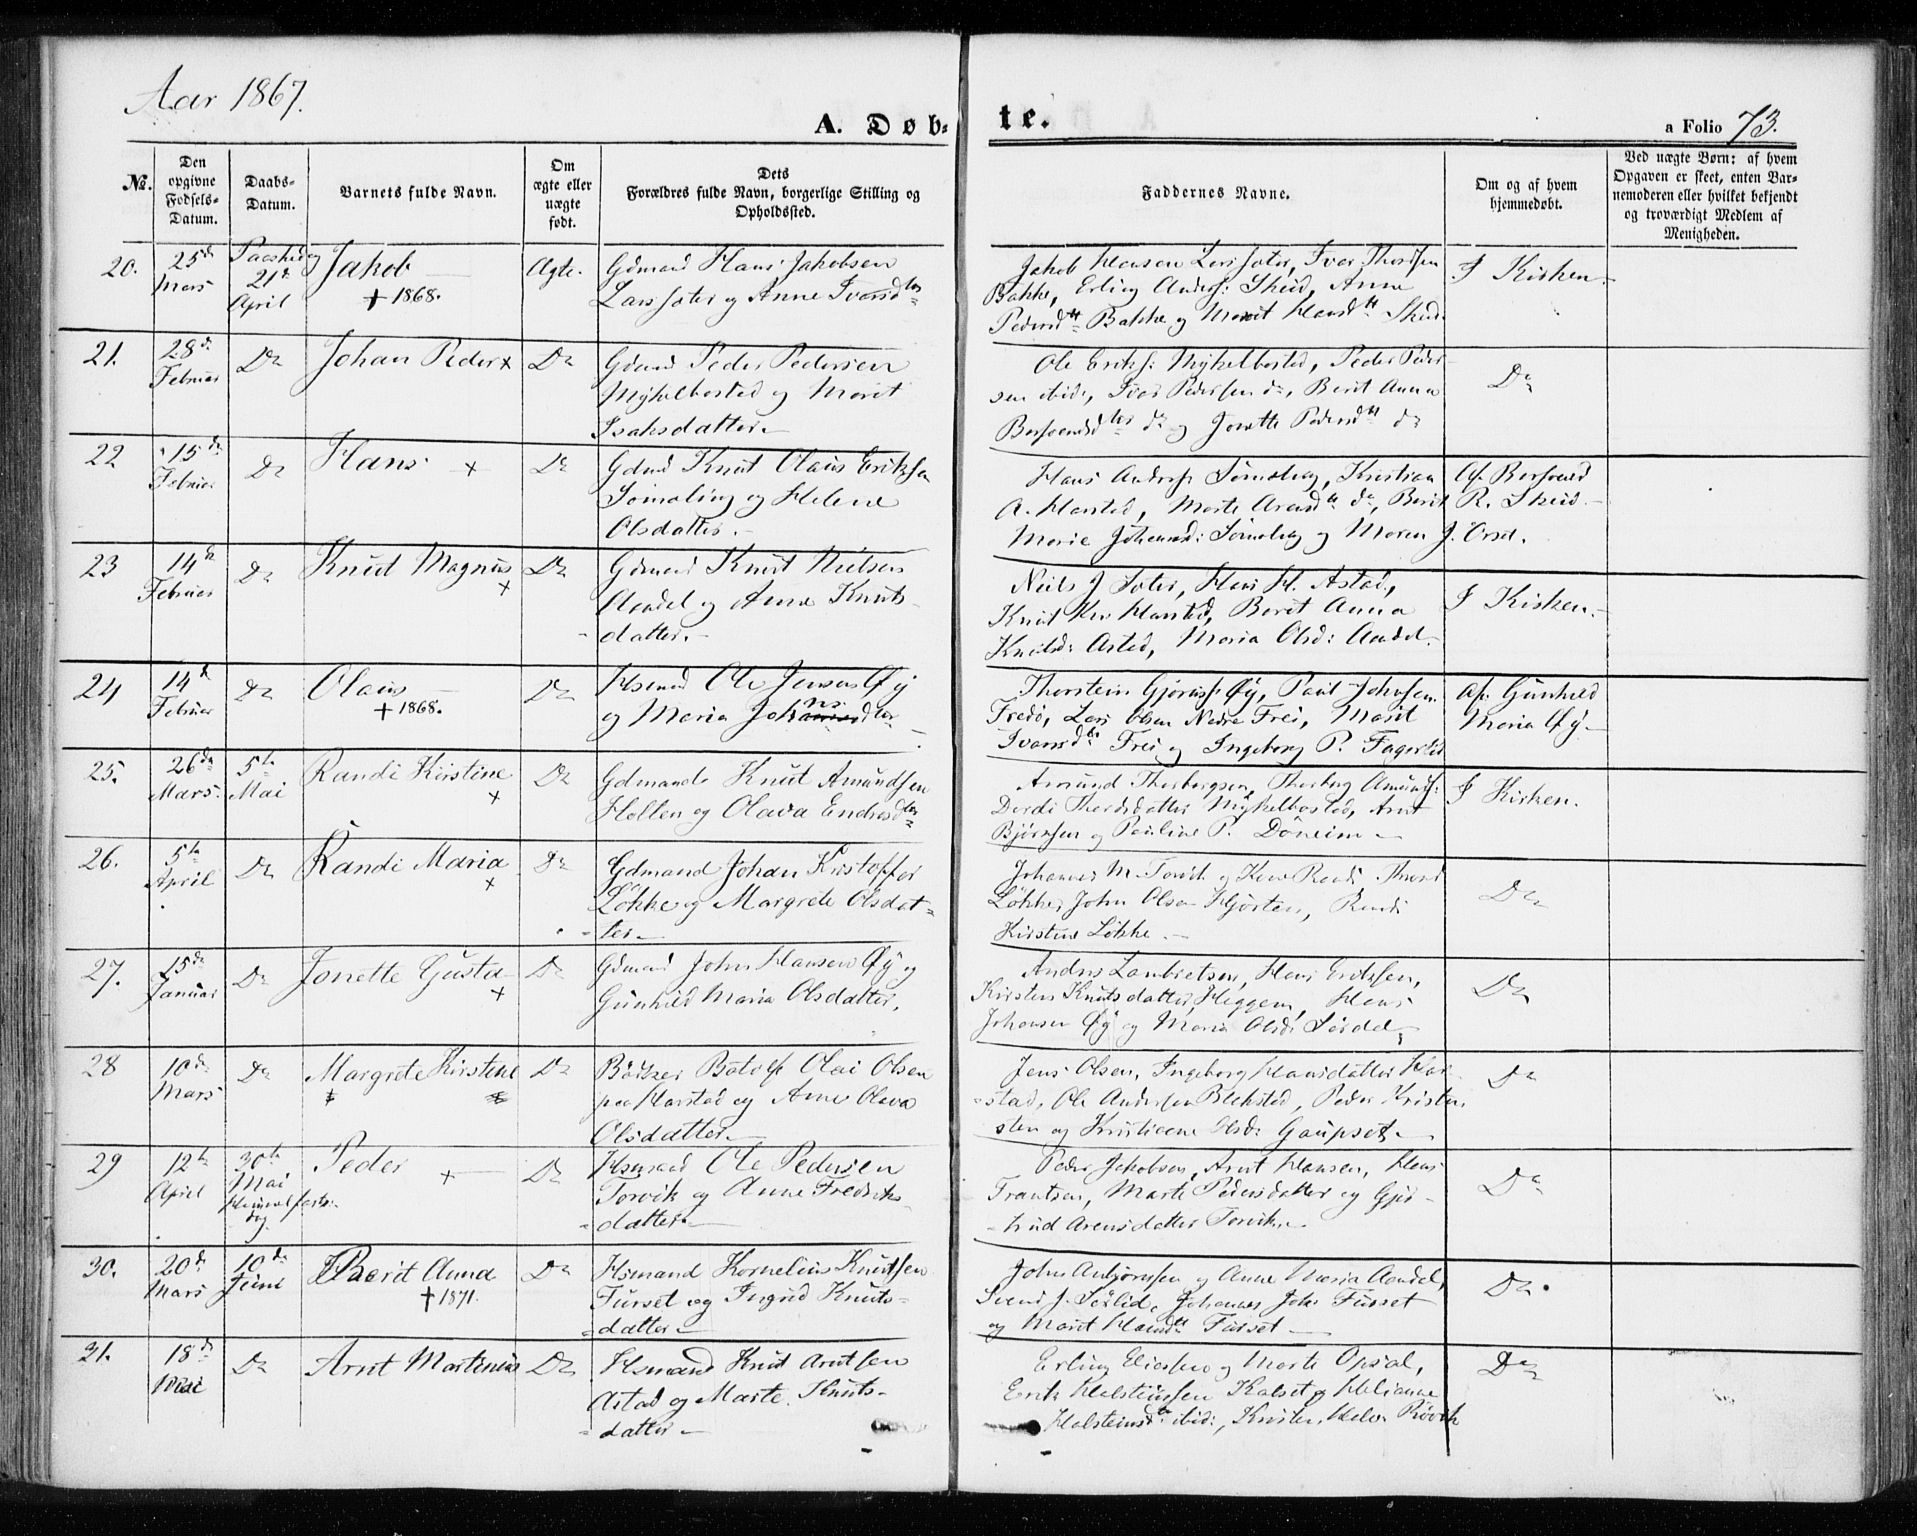 Aar 1867.
A. Døbte.
a Folio 73.
No.
Den opgivne Fødsels-Datum.
Daabs-Datum.
Barnets fulde Navn.
Om ægte eller uægte født.
Dets Forældres fulde Navn, borgerlige Stilling og Opholdssted.
Faddernes Navne.
Om og af hvem hjemmedøbt.
Ved uægte Børn: af hvem Opgaven er skeet, enten Barnemoderen eller hvilket bekjendt og troværdigt Medlem af Menigheden.
20. 25de Mars 21de April Jakob + 1868. Ægte. Gdmand Hans Jakobsen
Larssæter og Anne Ivarsdter
Jakob Hansen Larssæter, Ivar
Bakke, Erling Anders: Skud, Anne
Pedersdtr Bakke og Marit Hansdtr Skud.
I Kirken.
21. 28de Februar Do Johan Peder + Do Gdmand Peder Pedersen
Myhelbostad og Marit
Isaksdatter.
Ole Eriks: Myhelbostad, Peder Peder-
sen ibid, Ivar Pedersen do, Berit Anna
do og Pedersdtr do
Do
22 15de Februar Do Hans + Do Gdmd Knut Olaus Eriksen
og Helene
Olsdatter.
Hans Kristian
A. Harstad, Marte do, Berit
Marie og Maren J. Orset.
Af
R. Skud.
23 14de Februar Do Knut Magnus + Do Gdmand Knut Nielsen
Aandal og Anne Knuts-
datter.
Niels J. Sæter, Hans H. Astad,
Knut Harstad, Berit Anna
Knutsd: Astad, Maria Olsd: Aandal.
I Kirken.
24 14de Februar Do Olaus + 1868. Do Hsmand Ole Jensen Øy
og Maria Johnsdter
Thorstein Øy, Paul Johnsen
Fredø, Lars Olsen Nedre Frei, Marit
Ivarsdtr Frei og Ingeborg P. Fagerlid
Af Gunhild
Maria Øy
25. 26de Mars. 5te Mai Randi Kirstine + Do Gdmand Knut Amundsen
Hollen og Olava Endresdter
Amund Thorbergsen, Thorberg Amunds:
Dordi Thordsdatter Myhelbostad, Arnt
Bjørnsen og Pauline P. Døneim
I Kirken.
26. 5te April Do Randi Maria + Do Gdmand Johan Kristoffer
Løkke og Margrete Olsdat-
ter
Johannes M. Torvik og Kone Randi
Løkke, John Olsen Hjorten, Randi
Kirstine Løkke.
Do
27. 15de Januar Do Jonette Gusta + Do Gdmand John Hansen Øy og
Gunhild Maria Olsdatter,
Anders Lambretsen, Hans Eriksen,
Kirsten Knutsdatter, Heggem, Hans
Johansen Øy og Maria Olsd: Sørdal
Do
28 10de Mars Do Margrete Kirstine Do Bødker Botolf Olai Olsen
paa Harstad og Ane Olava
Olsdatter
Jens Olsen, Ingeborg Hansdatter Har-
stad, Ole Andersen Blekstad, Peder Kristen-
sen og Olsd: Gaupset.
Do
29 12te April 30te Mai Himmelfartsdag Peder + Do Hsmand Ole Pedersen
Torvik og Anne Fredriks-
datter.
Peder Jakobsen, Arnt Hansen, Hans
Frantsen, Marte Pedersdatter og Gjer-
trud Arensdatter Torvik.
Do
30. 20de Mars 10de Juni Berit Anna + 1871. Do Hsmand Kornelius Knutsen
Furset og Ingrid Knuts-
datter
John og Anne Maria Aandal,
Svend J. Sørlid, Johannes Johs Furset
og Marit Hansdtr Furset
Do.
31. 18de Mai Do Arnt Martinus Do Hsmand Knut Arntsen
Astad og Marte Knuts-
datter
Erling Eliassen og Marte Opsal,
Erik Halsteinsen Kalset og Helianne
Halsteinsdtr ibid:,
Do